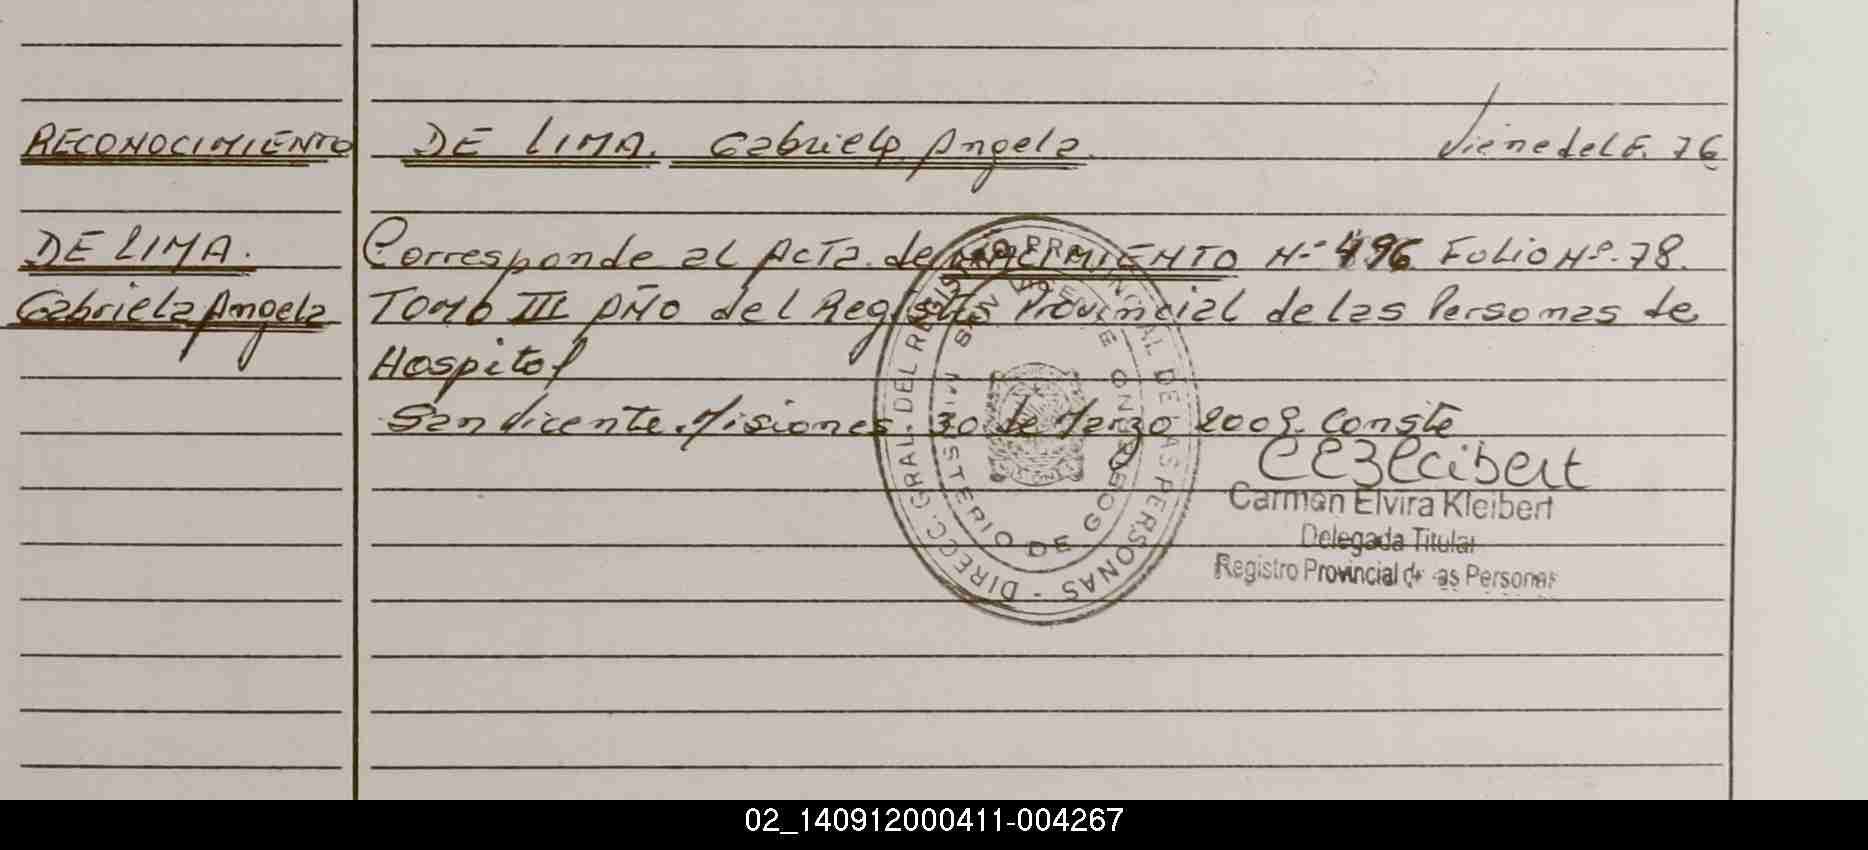 RECONOCIMIENTO
DE LIMA.
Gabriela Angela
DE LIMA. Gabriela Angela.
Viene del F. 76
Corresponde al Acta. de NACIMIENTO Nº 496 Folio Nº. 78.
TOMO III AÑO del Registro Provincial de las Personas de
Hospital
San Vicente. Misiones 30 de Marzo 2009. Conste
CEKleibert
Carmen Elvira Kleibert
Delegada Titular
Registro Provincial de las Personas
DIRECC. GRAL. DEL REGISTRO PROVINCIAL DE LAS PERSONAS -
MINISTERIO DE GOBIERNO
SAN VICENTE
02_140912000411-004267